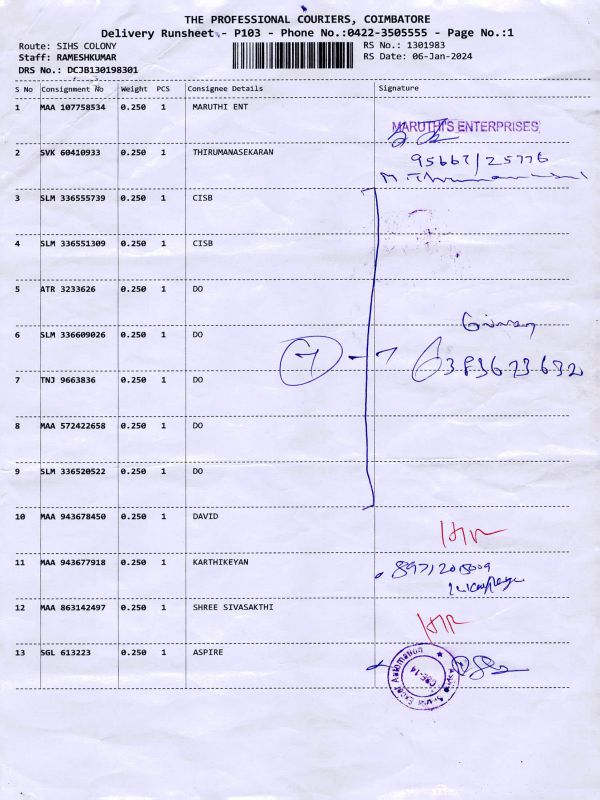 THE PROFESSIONAL COURIERS, COIMBATORE
Delivery Runsheet - P103 - Phone No.:0422-3505555 - Page No.:1
Route: SIHS COLONY RS No.: 1301983
Staff: RAMESHKUMAR RS Date: 06-Jan-2024
DRS No.: DCJB130198301
S No Consignment No Weight PCS Consignee Details Signature
1 MAA 107758534 0.250 1 MARUTHI ENT
MARUTHI'S ENTERPRISES
2 SVK 60410933 0.250 1 THIRUMANASEKARAN
3 SLM 336555739 0.250 1 CISB
4 SLM 336551309 0.250 1 CISB
5 ATR 3233626 0.250 1 DO
6 SLM 336609026 0.250 1 DO
7
7 TNJ 9663836 0.250 1 DO
8 MAA 572422658 0.250 1 DO
9 SLM 336520522 0.250 1 DO
10 MAA 943678450 0.250 1 DAVID
11 MAA 943677918 0.250 1 KARTHIKEYAN
12 MAA 863142497 0.250 1 SHREE SIVASAKTHI
13 SGL 613223 0.250 1 ASPIRE
CBE-14